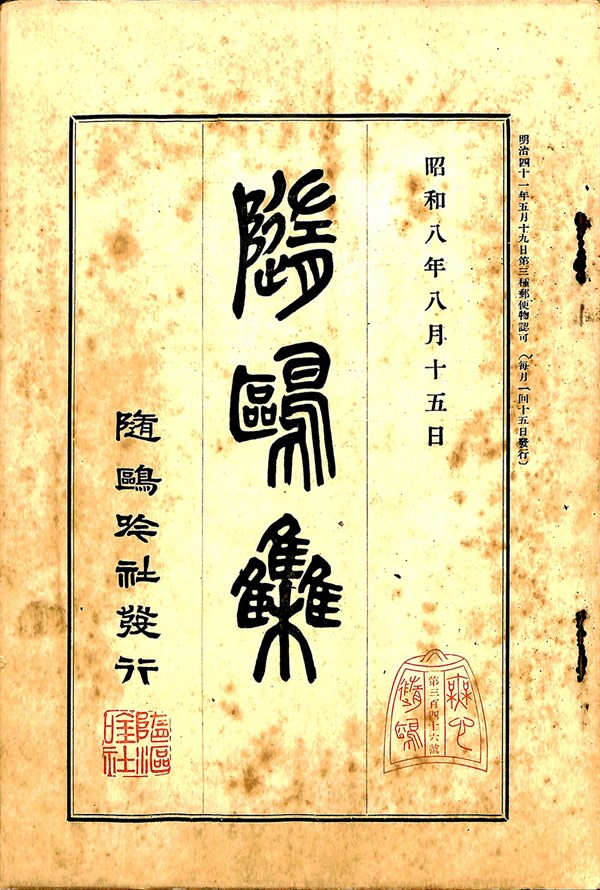 明治四十一年五月十九日第三種郵便物認可（每月一回十五日發行）
昭和八年八月十五日
隨鷗集
隨鷗吟社發行
無心
第三百四十六號
隨鷗